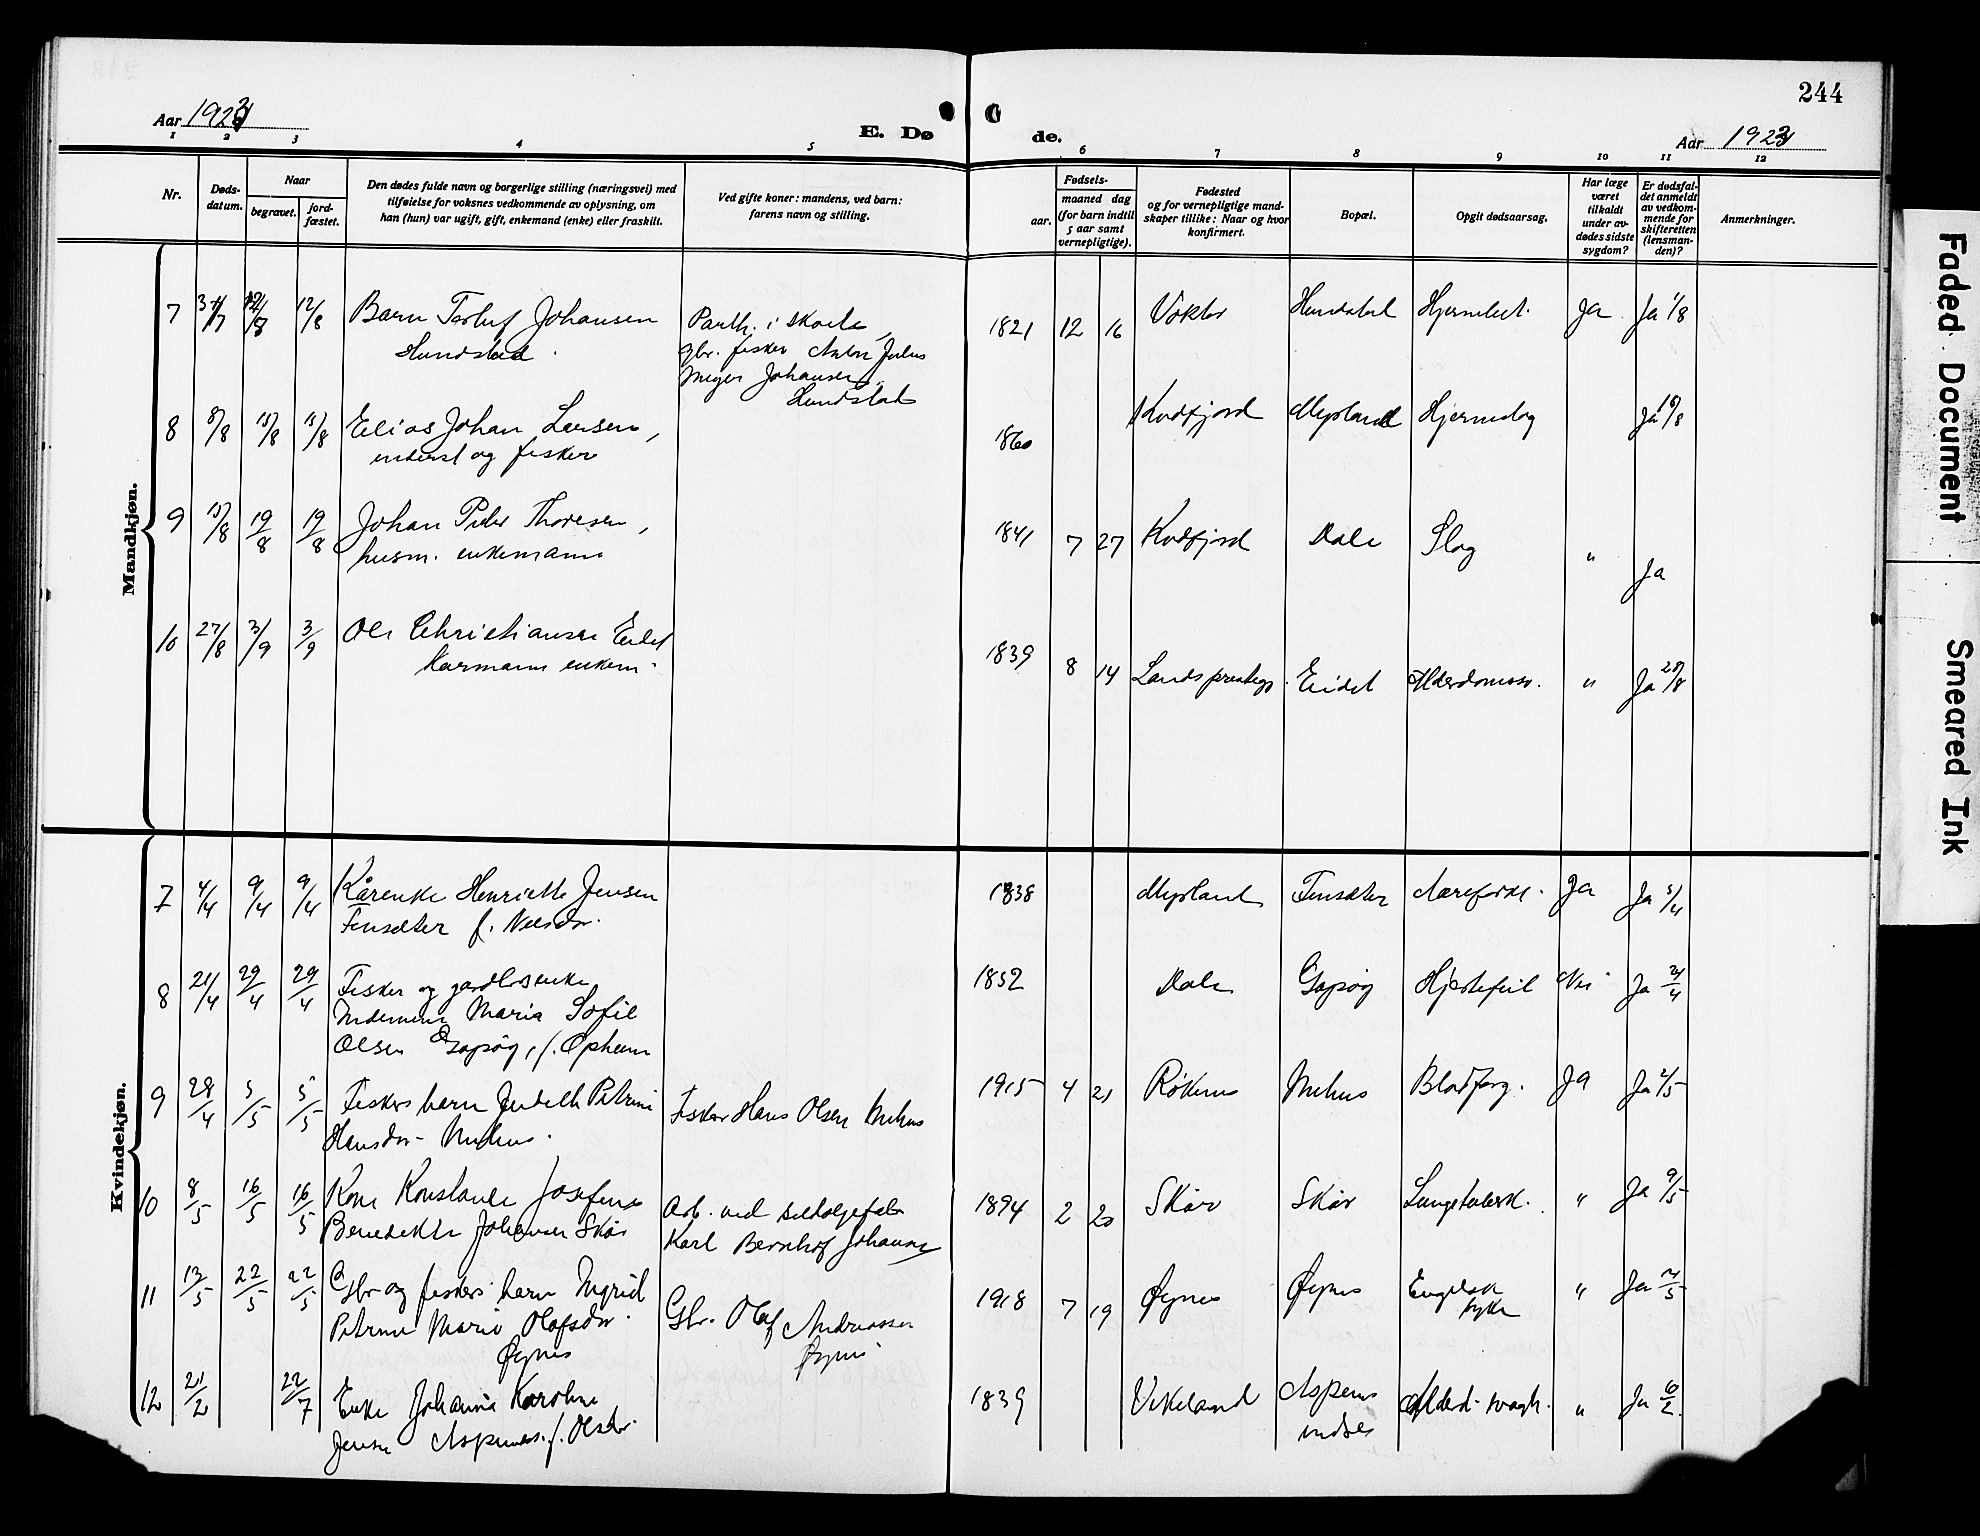 244
Aar 1923
E. Døde.
Aar 1923
1 2 3 4 5 6 7 8 9 10 11 12
Nr.
Døds-
datum.
Naar
begravet.
jord-
fæstet.
Den dødes fulde navn og borgerlige stilling (næringsvei) med
tilføielse for voksnes vedkommende av oplysning, om
han (hun) var ugift, gift, enkemand (enke) eller fraskilt.
Ved gifte koner: mandens, ved barn:
farens navn og stilling.
Fødsels-
aar.
maaned dag
(for barn indtil
5 aar samt
vernepligtige).
Fødested
og for vernepligtige mand-
skaper tillike: Naar og hvor
konfirmert.
Bopæl.
Opgit dødsaarsag.
Har læge
været
tilkaldt
under av-
dødes sidste
sygdom?
Er dødsfal-
det anmeldt
av vedkom-
mende for
skifteretten
(lensman-
den)?
Anmerkninger.
Mandkjøn.
7 12/8 Barn Johansen
Hundstad
fisker Anton Julius
Meyer Johansen
Hundstad
1821 12 16 Ja Ja 1/8
8 8/8 15/8 15/8 Elias Johan Larsen,
inderst og fisker
1860 Kvdfjord Myrland Hjerneslag Ja 10/8
9 15/8 19/8 19/8 Johan Peder Thoresen,
husm. enkemann
1841 7 27 Kvdfjord Dale Slag " Ja
10 27/8 3/9 3/9 Ole Christiansen Eidet
kaarmann enkem.
1839 8 14 Eidet Alderdomssv. " Ja 28/8
Kvindekjøn.
7 4/4 9/4 9/4 Kårenke Henriette Jensen
Finsæter f. Nilsdr.
1838 Myrland Finsæter Ja Ja 5/4
8 21/4 29/4 29/4 Fisker og
Maria Sofie
Olsen Gapøy, f. Opheim
1852 Dale Gapøy Hjertefeil Nei Ja 24/4
9 28/4 5/5 5/5 Fiskers barn Judith Petrine
Hansdr. Melhus.
Fisker Hans Olsen Melhus
1915 4 21 Røkenes Melhus Blodforg. Ja Ja 2/5
10 8/5 16/5 16/5 Kone Konstanse Josefine
Benedikte Johansen Skår
Arb. ved sildoljefabr
Karl Bernhof Johansen
1894 2 20 Skår Skår Lungetuberk. " Ja 9/5
11 13/5 22/5 22/5 Gbr og fiskers barn Ingrid
Petrine Marie Olafsdr.
Øynes
Gbr. Olaf Andreassen
Øynes
1918 7 19 Øynes Øynes Engelsk
syke " Ja 14/5
12 21/2 22/7 Enke Johanna Karoline
Jensen Aspenes f. Olsdr.
1839 Vikeland Aspenes
indses Alderd. svagh. " Ja 6/2
Faded Document
Smeared Ink